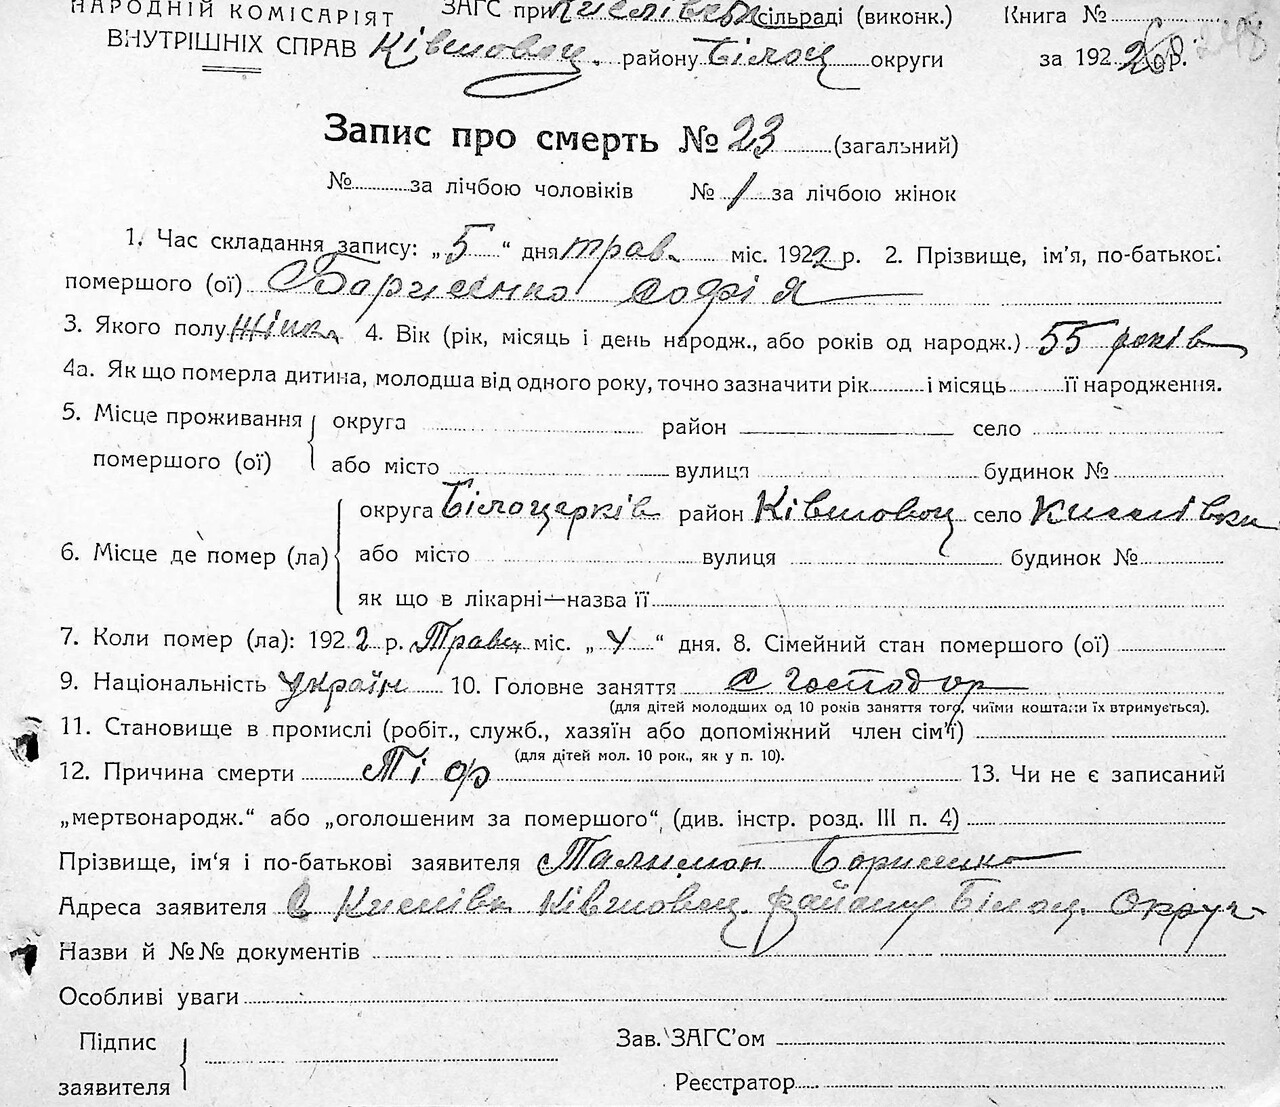 НАРОДНІЙ КОМІСАРІЯТ ЗАГС при Кислівськ сільраді (виконк.) Книга №
ВНУТРІШНІХ СПРАВ Ківшовац. району Білоц округи за 1922 р.
Запис про смерть № 23 (загальний)
№ за лічбою чоловіків № 1 за лічбою жінок
1. Час складання запису: „5“ дня трав. міс. 1922 р. 2. Прізвище, ім'я, по-батькові
помершого (ої) Борисенко Софія
3. Якого полу жінк. 4. Вік (рік, місяць і день народж., або років од народж.) 55 років
4а. Як що померла дитина, молодша від одного року, точно зазначити рік і місяць її народження.
5. Місце проживання округа район село
помершого (ої) або місто вулиця будинок №
округа Білоцерків район Ківшовац село Кислівка
6. Місце де помер (ла) або місто вулиця будинок №
як що в лікарні—назва її
7. Коли помер (ла): 1922 р. Травц міс. „4“ дня. 8. Сімейний стан помершого (ої)
9. Національність україн 10. Головне заняття с господор
(для дітей молодших од 10 років заняття того, чиїми коштами їх втримується).
11. Становище в промислі (робіт., служб., хазяїн або допоміжний член сім'ї)
(для дітей мол. 10 рок., як у п. 10).
12. Причина смерти 13. Чи не є записаний
„мертвонародж.“ або „оголошеним за помершого“, (див. інстр. розд. III п. 4)
Прізвище, ім'я і по-батькові заявителя Талимон Борисенко
Адреса заявителя С Кислівк Ківшовац. району Білоц. Округ
Назви й №№ документів
Особливі уваги
Підпис Зав. ЗАГС'ом
заявителя Реєстратор